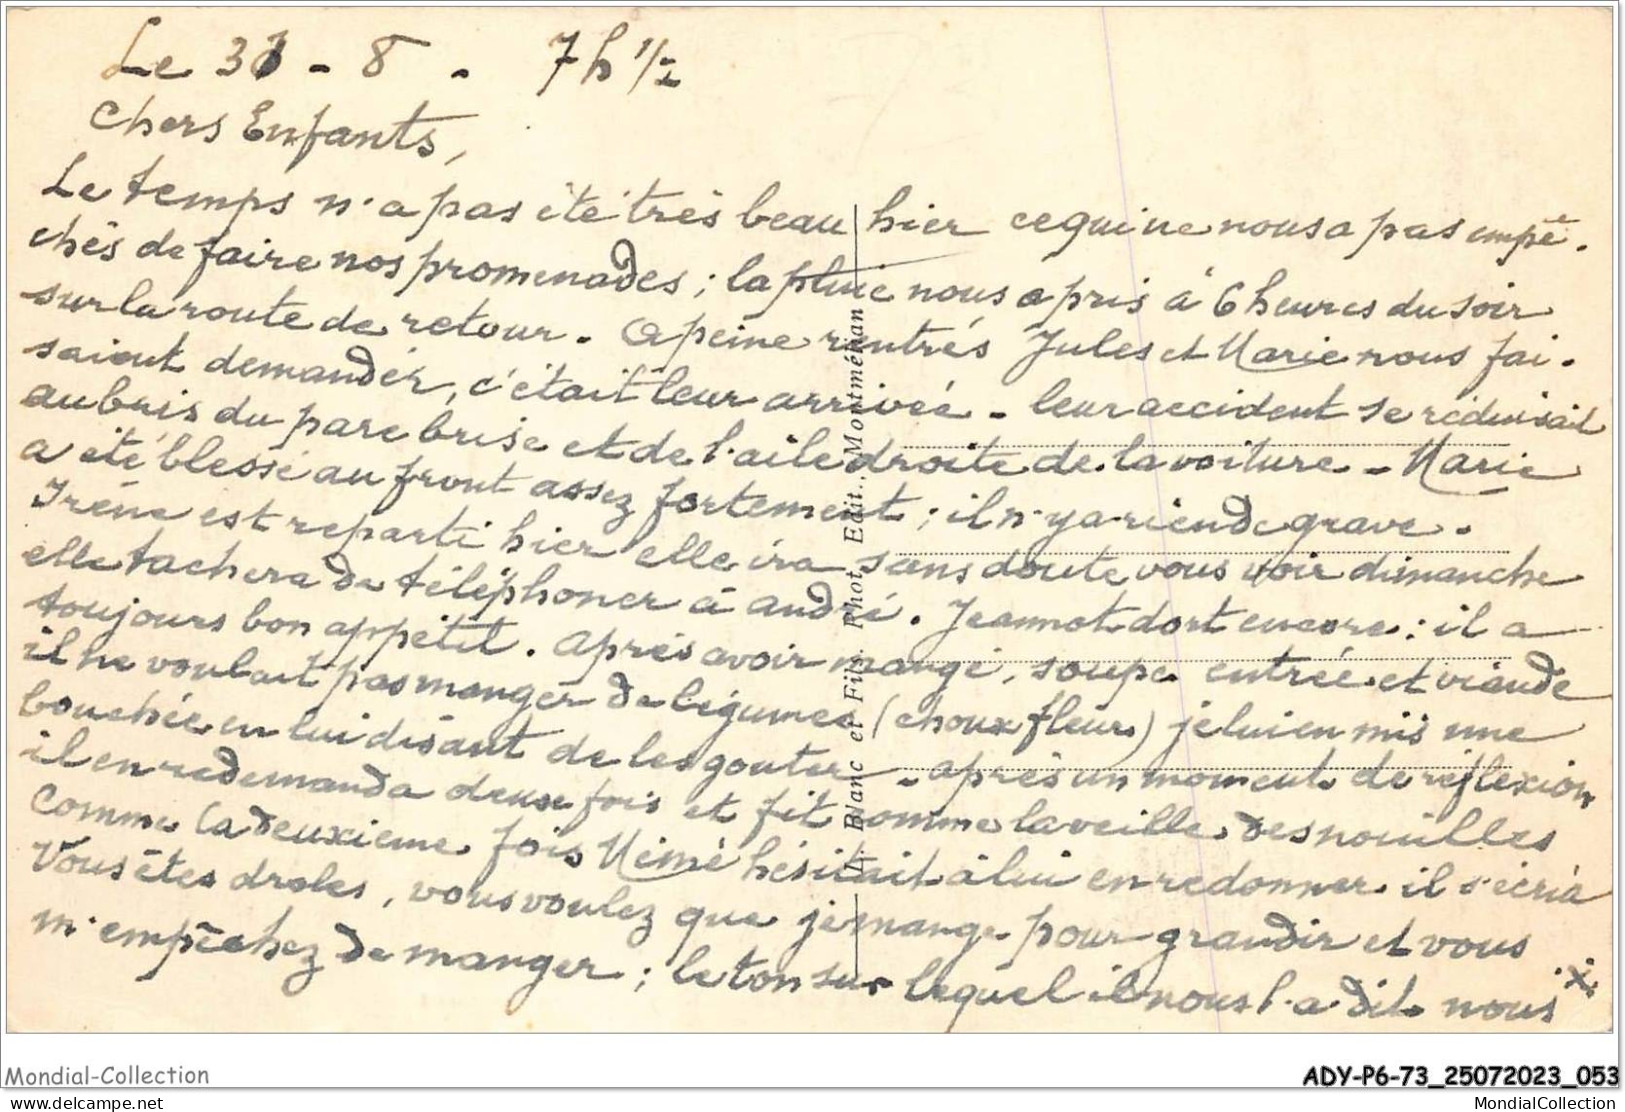 Le 31 - 8 - 7h 1/2
Chers Enfants,
Le temps n'a pas été très beau hier ce qui ne nous a pas empê-
chés de faire nos promenades ; la pluie nous a pris à 6 heures du soir
sur la route de retour. A peine rentrés Jules et Marie nous fai-
saient demander, c'était leur arrivée - leur accident se réduisait
au bris du pare brise et de l'aile droite de la voiture - Marie
a été blessé au front assez fortement ; il n'y a rien de grave.
Irène est reparti hier elle ira sans doute vous voir dimanche
elle tachera de téléphoner à André. Jeannot dort encore : il a
toujours bon appétit. Après avoir mangé, soupe entrée et viande
il ne voulait pas manger de légumes (choux fleurs) je lui en mis une
bouchée en lui disant de les gouter - après un moment de réflexion
il en redemanda deux fois et fit comme la veille des nouilles
Comme la deuxieme fois Mémé hésitait à lui en redonner il s'écria
Vous êtes droles, vous voulez que je mange pour grandir et vous
m'empêchez de manger ; le ton sur lequel il nous l'a dit nous
L. Blanc et Fils, Phot. Edit., Montmélian
Mondial-Collection
ADY-P6-73_25072023_053
delcampe.net
MondialCollection